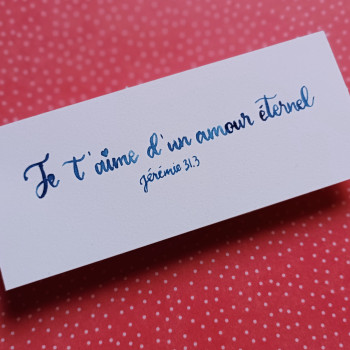 Je t'aime d'un amour éternel
Jérémie 31.3